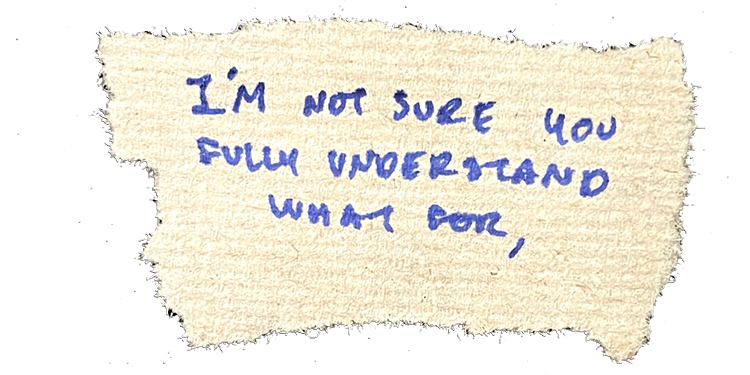 I'M NOT SURE YOU
FULLY UNDERSTAND
WHAT FOR,